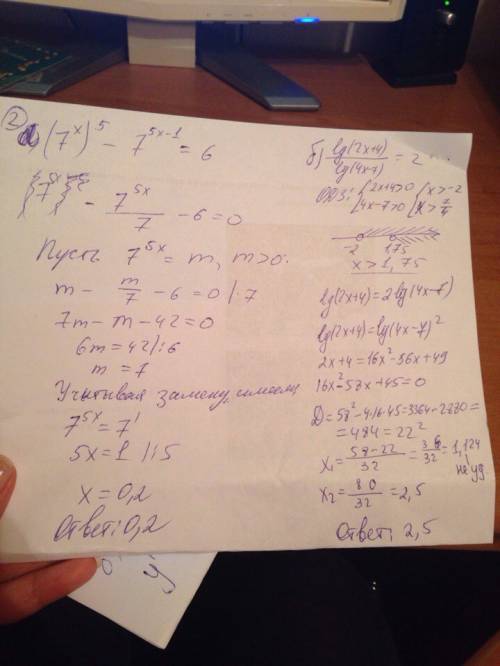 2
а) (7^x)^5 - 7^{5x-1} = 6
7^{5x} - 7^{5x}/7 - 6 = 0
Пусть 7^{5x} = m, m>0.
m - m/7 - 6 = 0 |·7
7m - m - 42 = 0
6m = 42 |:6
m = 7
Учитывая замену, имеем
7^{5x} = 7^1
5x = 1 |:5
x = 0,2
Ответ: 0,2
б) lg(2x+4)/lg(4x-7) = 2
ОДЗ: {2x+4>0 {x>-2
{4x-7>0 {x>7/4
-2 1,75
x > 1,75
lg(2x+4) = 2lg(4x-7)
lg(2x+4) = lg(4x-7)^2
2x+4 = 16x^2-56x+49
16x^2-58x+45=0
D = 58^2-4·16·45=3364-2880=
=484=22^2
x₁ = (58-22)/32 = 36/32 = 1,124
не уд.
x₂ = 80/32 = 2,5
Ответ: 2,5